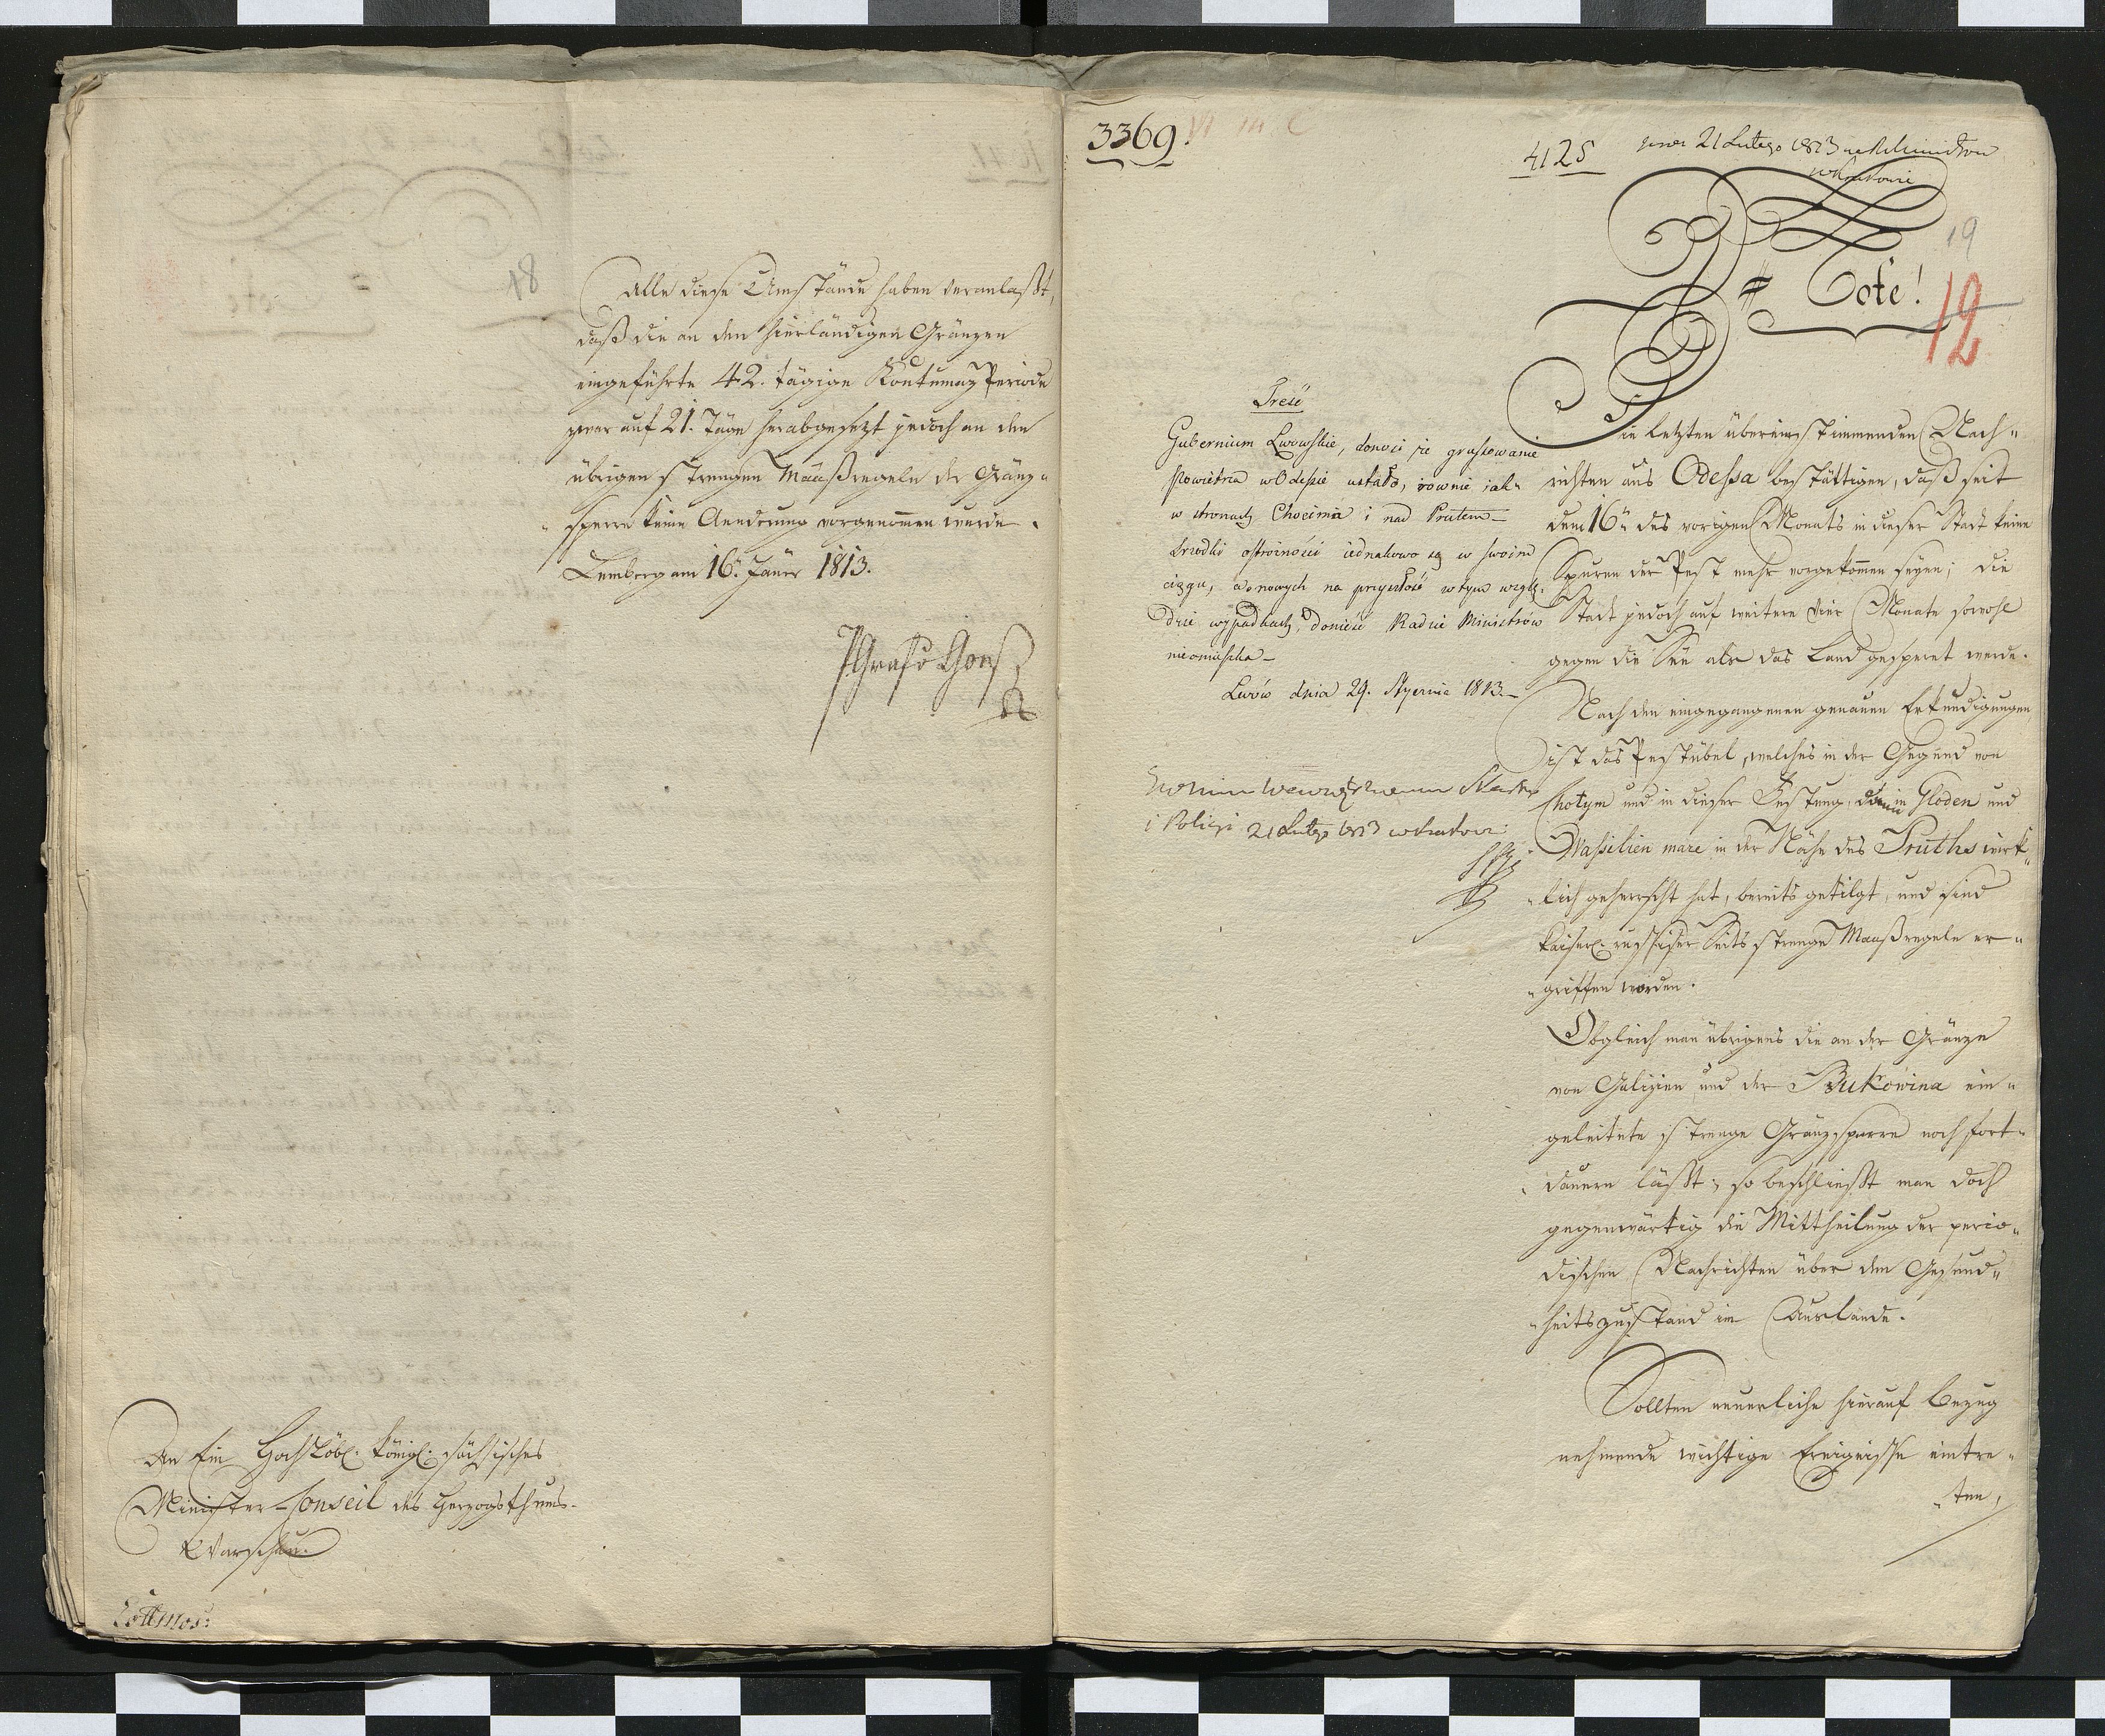 18
Alle diese Umstände haben veranlaßt,
daß die an den hierländigen Gränzen
eingeführte 42. tägige Kontumaz Periode
zwar auf 21. Täge herabgesetzt jedoch an den
übrigen strengen Maaßregeln der Gränz„
„sperre keine Aenderung vorgenomen wurde.
Lemberg am 16n. Jäner 1813.
An Ein Hochlöbl. königl. sächsisches
Minister-Conseil des Herzogthums
Warschau.
3369.
4125
21 Lutego 1813
w Krakowie
19
Note!
12
Treść
Gubernium Lwowskie, donosi że grassowanie
Powietrza w Odessie ustało, rownie iak
w stronach Chocima i nad Prutem –
środki ostrożności iednakowo są w swoim
ciągu, a o nowych na przyszłość w tym wzglę„
dzie wypadkach, donieść Radzie Ministrów
nieomieszka –
Lwów dnia 29. Stycznia 1813. –
i Policyi 21 Lutego 1813 w Krakowie
Die letzten übereinstimmenden Nach„
richten aus Odessa bestättigen, daß seit
dem 16n des vorigen Monats in dieser Stadt keine
Spuren der Pest mehr vorgekomen seyen; die
Stadt jedoch auf weitere vier Monate sowohl
gegen die See als das Land gesperet werde.
Nach den eingegangenen genauen Erkundigungen
ist das Pestübel, welches in der Gegend von
Chotym und in dieser Festung, dann in Gloden und
Wassilien mare in der Nähe des Pruths wirk„
„lich geherrscht hat, bereits getilgt, und sind
kaiserl. russischer Seits strenge Maaßregeln er„
„griffen worden.
Obgleich man übrigens die an der Gränze
von Galizien und der Bukowina ein„
geleitete strenge Gränzsperre noch fort„
„dauern läßt; so beschließt man doch
gegenwärtig die Mittheilung der perio„
dischen Nachrichten über den Gesund„
„heitszustand im Auslande.
Sollten neuerliche hierauf Bezug
nehmende wichtige Ereignisse eintre„
„ten,